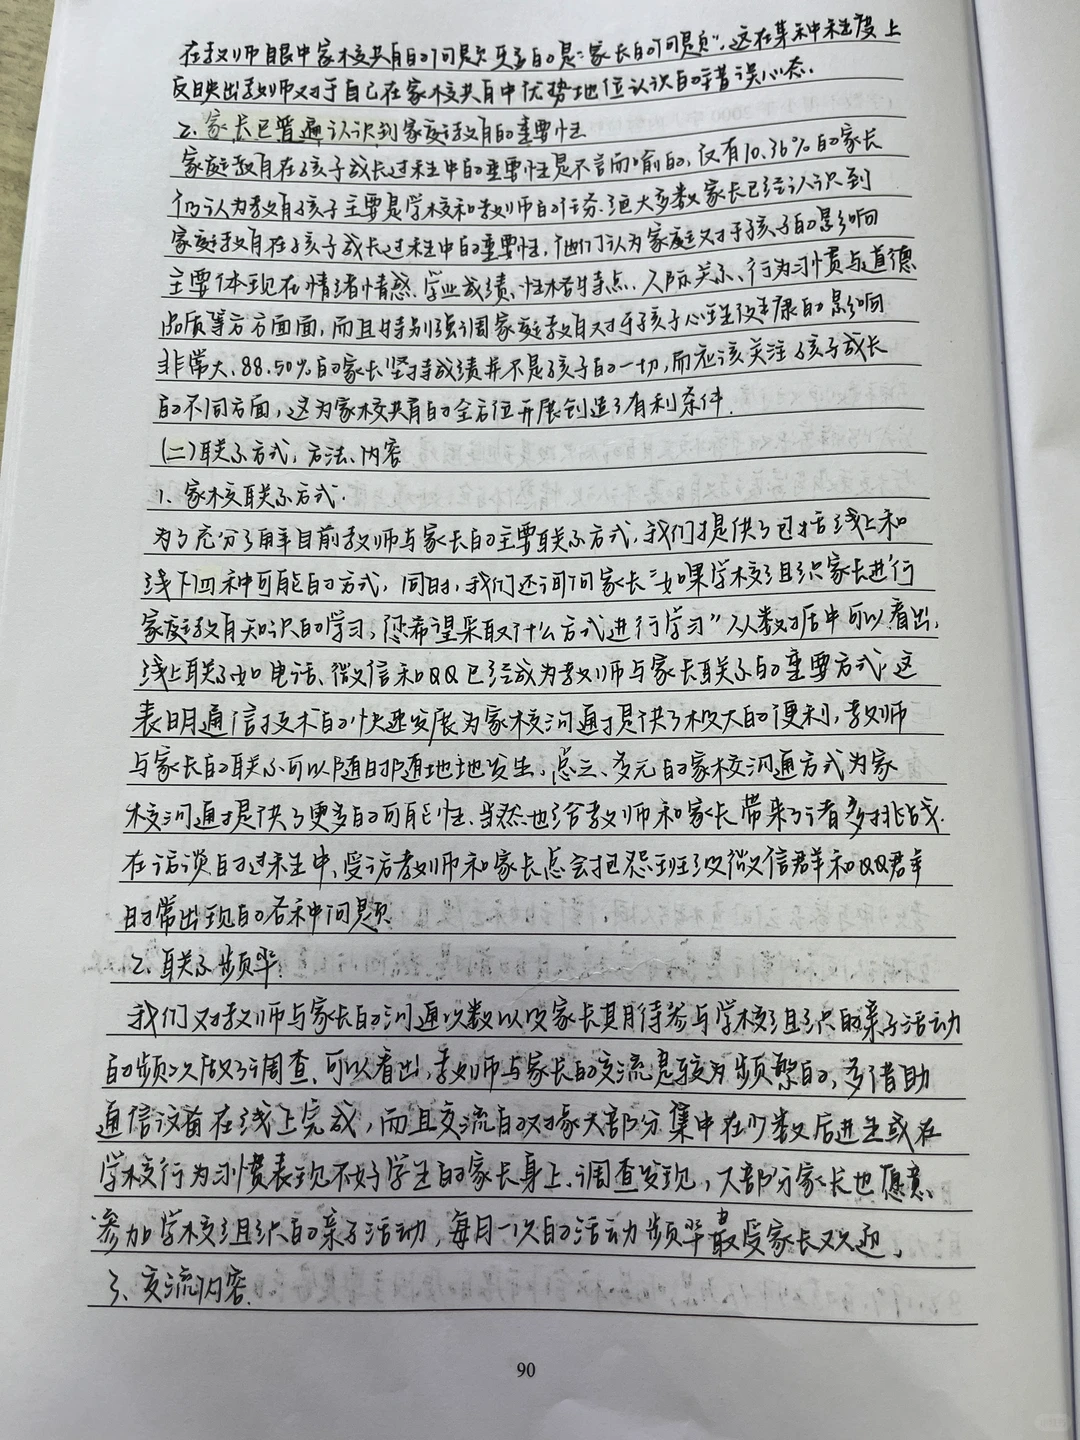 在教师眼中家校共育的问题更多的是“家长的问题”，这在某种程度上
反映出教师对于自己在家校共育中优势地位认识的错误心态.
2.家长已普遍认识到家庭教育的重要性
家庭教育在孩子成长过程中的重要性是不言而喻的,仅有10.36%的家长
仍认为教育孩子主要是学校和教师的任务.绝大多数家长已经认识到
家庭教育在孩子成长过程中的重要性,他们认为家庭对于孩子的影响
主要体现在情绪情感、学业成绩、性格特点、人际关系、行为习惯与道德
品质等方方面面,而且特别强调家庭教育对于孩子心理健康的影响
非常大、88.50%的家长坚持成绩并不是孩子的一切,而应该关注孩子成长
的不同方面,这为家校共育的全方位开展创造了有利条件.
(二)联系方式,方法、内容
1、家校联系方式.
为了充分了解目前教师与家长的主要联系方式,我们提供了包括线上和
线下四种可能的方式,同时,我们还询问家长“如果学校组织家长进行
家庭教育知识的学习,您希望采取什么方式进行学习”从数据中可以看出,
线上联系如电话、微信和QQ已经成为教师与家长联系的重要方式.这
表明通信技术的快速发展为家校沟通提供了极大的便利,教师
与家长的联系可以随时随地地发生.总之、多元的家校沟通方式为家
校沟通提供了更多的可能性.当然也给教师和家长带来了诸多挑战.
在访谈的过程中,受访教师和家长总会抱怨班级微信群和QQ群
时常出现的各种问题.
2.联系频率
我们对教师与家长的沟通次数以及家长期待参与学校组织的亲子活动
的频次做了调查、可以看出,教师与家长的交流是较为频繁的,多借助
通信设备在线上完成,而且交流的对象大部分集中在少数后进生或在
学校行为习惯表现不好学生的家长身上.调查发现,大部分家长也愿意
参加学校组织的亲子活动,每月一次的活动频率最受家长欢迎、
3、交流内容.
90